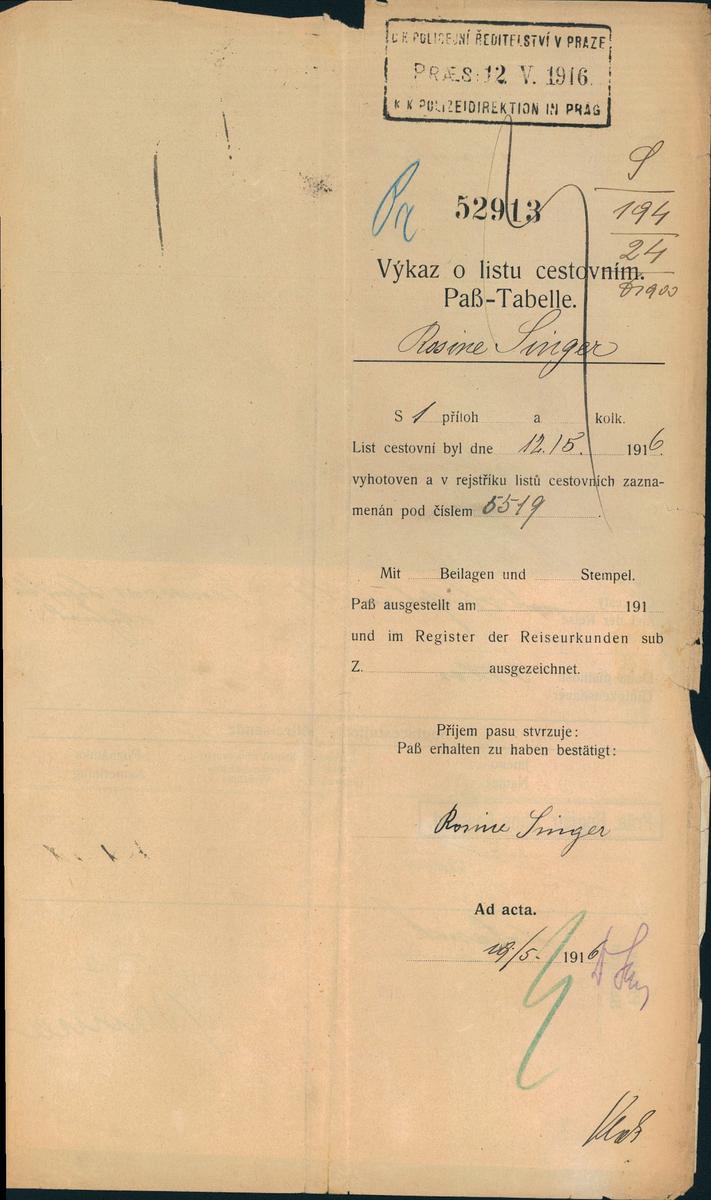 C K POLICEJNÍ ŘEDITELSTVÍ V PRAZE
PRÆS: 12. V. 1916.
K K POLIZEIDIREKTION IN PRAG
S
194
24
52913
Výkaz o listu cestovním.
Paß-Tabelle.
Rosine Singer
S 1 příloh a kolk.
List cestovní byl dne 12./5. 1916.
vyhotoven a v rejstříku listů cestovních zazna-
menán pod číslem 5519
Mit Beilagen und Stempel.
Paß ausgestellt am 191
und im Register der Reiseurkunden sub
Z. ausgezeichnet.
Příjem pasu stvrzuje:
Paß erhalten zu haben bestätigt:
Rosine Singer
Ad acta.
/5. 1916